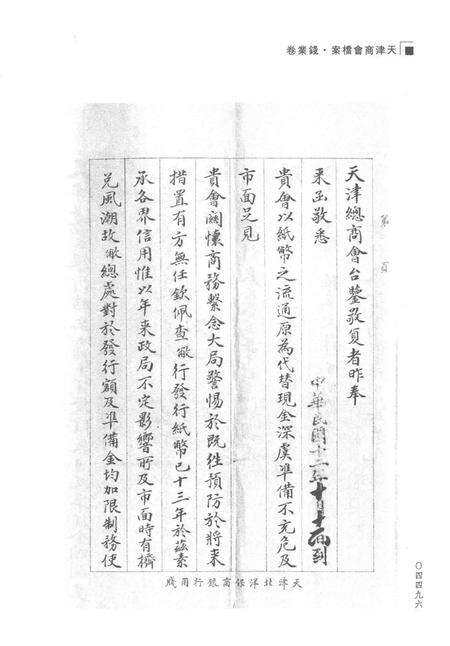 天津商會檔案·錢業卷
第 頁
天津總商會台鑒敬复者昨奉
来函敬悉
中華民國十二年十月十一日到
貴會以紙幣之流通原為代替現金深虞準備不充危及
市面足見
貴會關懷商務繫念大局警惕於既往預防於將来
措置有方無任欽佩查敝行發行紙幣已十三年於茲素
承各界信用惟以年来政局不定影響所及市面時有擠
兑風潮故敝總處對於發行額及準備金均加限制務使
天津北洋保商銀行用牋
〇四四九六